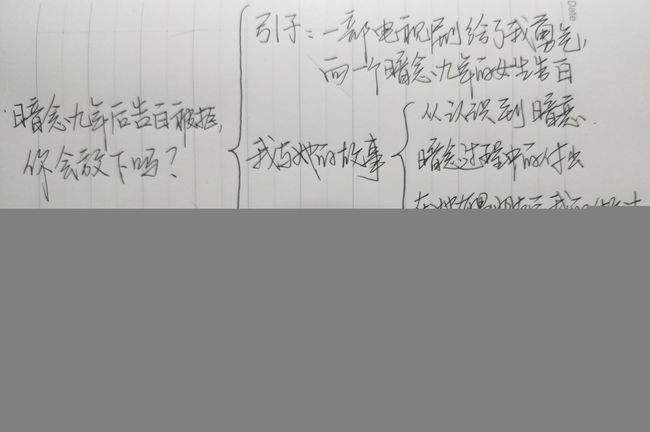 引子：一部电视剧给了我勇气，
向一个暗恋九年的女生告白
暗恋九年后告白被拒，
你会放下吗？
我与她的故事
从认识到暗恋
暗恋过程中的付出
Date